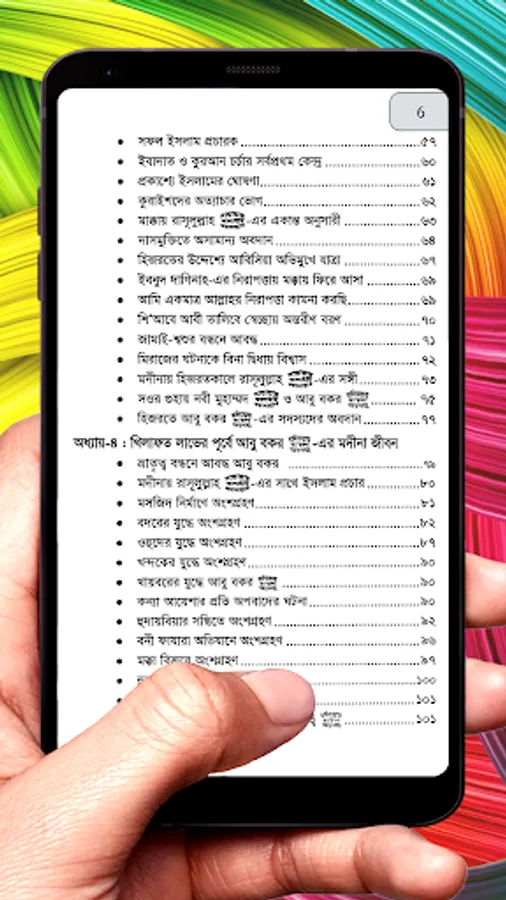 6
সফল ইসলাম প্রচারক ৫৭
ইবাদাত ও কুরআন চর্চার সর্বপ্রথম কেন্দ্র ৬০
প্রকাশ্যে ইসলামের ঘোষণা ৬১
কুরাইশদের অত্যাচার ভোগ ৬২
মাক্কায় রাসূলুল্লাহ ﷺ-এর একান্ত অনুসারী ৬৩
দাসমুক্তিতে অসামান্য অবদান ৬৪
হিজরতের উদ্দেশ্যে আবিসিয়া অভিমুখে যাত্রা ৬৭
ইবনুদ দাগিনাহ-এর নিরাপত্তায় মক্কায় ফিরে আসা ৬৯
আমি একমাত্র আল্লাহর নিরাপত্তা কামনা করছি ৬৯
শি'আবে আবী তালিবে স্বেচ্ছায় অন্তরীণ বরণ ৭০
জামাই-শ্বশুর বন্ধনে আবদ্ধ ৭১
মিরাজের ঘটনাকে বিনা দ্বিধায় বিশ্বাস ৭২
মদীনায় হিজরতকালে রাসূলুল্লাহ ﷺ-এর সঙ্গী ৭৩
সওর গুহায় নবী মুহাম্মদ ﷺ ও আবু বকর ৭৫
হিজরতে আবু বকর -এর সদস্যদের অবদান ৭৭
অধ্যায়-৪ : খিলাফত লাভের পূর্বে আবু বকর -এর মদীনা জীবন
ভ্রাতৃত্ব বন্ধনে আবদ্ধ আবু বকর ৭৯
মদীনায় রাসূলুল্লাহ ﷺ-এর সাথে ইসলাম প্রচার ৮০
মসজিদ নির্মাণে অংশগ্রহণ ৮১
বদরের যুদ্ধে অংশগ্রহণ ৮২
ওহুদের যুদ্ধে অংশগ্রহণ ৮৭
খন্দকের যুদ্ধে অংশগ্রহণ ৯০
খায়বরের যুদ্ধে আবু বকর ৯০
কন্যা আয়েশার প্রতি অপবাদের ঘটনা ৯০
হুদায়বিয়ার সন্ধিতে অংশগ্রহণ ৯২
বনী ফাযারা অভিযানে অংশগ্রহণ ৯৬
মক্কা বিজয়ে অংশগ্রহণ ৯৭
১০০
১০১
১০১